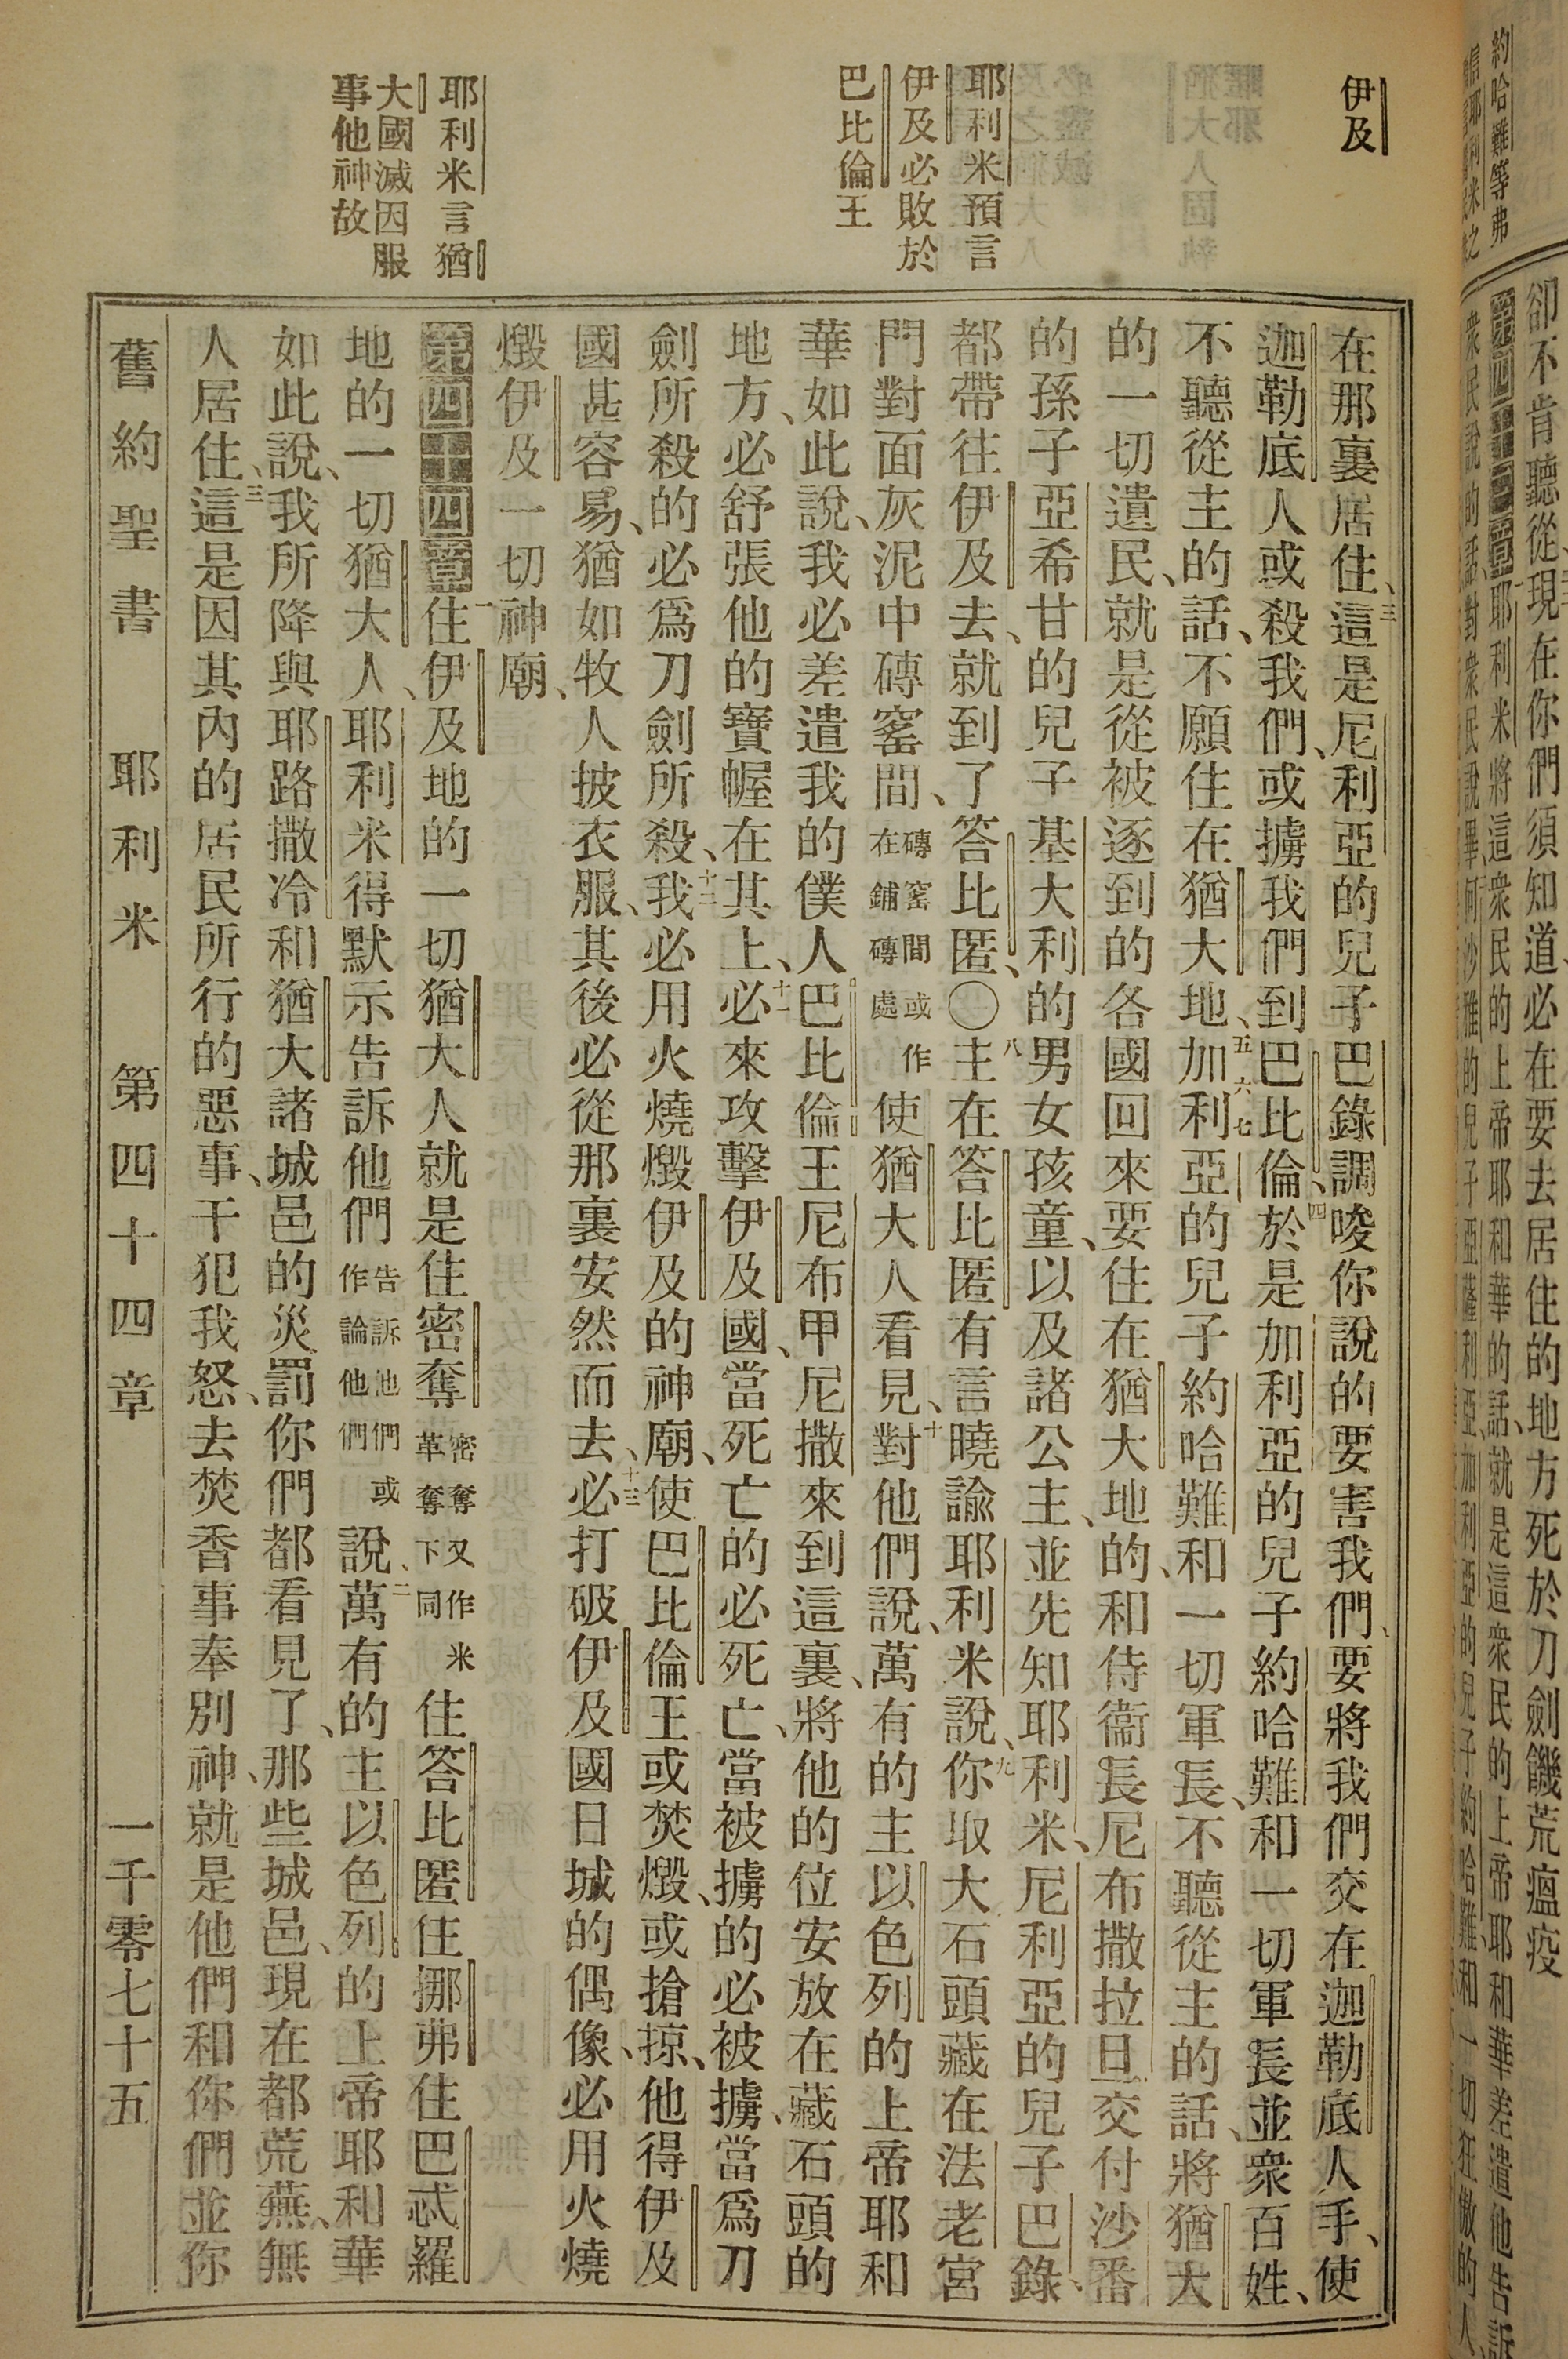 約哈難等弗
卻不肯聽從、現在你們須知道、必在要去居住的地方死於刀劍饑荒瘟疫
第四十三章 耶利米將這衆民的上帝耶和華的話、就是這衆民的上帝耶和華差遣他告訴
伊及
耶利米預言
伊及必敗於
巴比倫王
耶利米言猶
大國滅因服
事他神故
在那裏居住、三這是尼利亞的兒子巴錄調唆你說的要害我們、要將我們交在迦勒底人手、使
迦勒底人或殺我們、或擄我們到巴比倫、四於是加利亞的兒子約哈難和一切軍長並衆百姓、
不聽從主的話、不願住在猶大地、五六七加利亞的兒子約哈難和一切軍長、不聽從主的話、將猶大
的一切遺民、就是從被逐到的各國回來要住在猶大地的、和侍衞長尼布撒拉旦交付沙番
的孫子亞希甘的兒子基大利的男女孩童、以及諸公主、並先知耶利米、尼利亞的兒子巴錄、
都帶往伊及去、就到了答比匿、〇八主在答比匿有言曉諭耶利米說、九你取大石頭藏在法老宮
門對面灰泥中磚窰間、磚窰間或作在鋪磚處使猶大人看見、十對他們說、萬有的主以色列的上帝耶和
華如此說、我必差遣我的僕人巴比倫王尼布甲尼撒來到這裏、將他的位安放在藏石頭的
地方、必舒張他的寶幄在其上、十一必來攻擊伊及國、當死亡的必死亡、當被擄的必被擄、當爲刀
劍所殺的必爲刀劍所殺、十二我必用火燒燬伊及的神廟、使巴比倫王或焚燬、或搶掠、他得伊及
國甚容易、猶如牧人披衣服、其後必從那裏安然而去、十三必打破伊及國日城的偶像、必用火燒
燬伊及一切神廟、
第四十四章 一住伊及地的一切猶大人就是住密奪密奪又作米革奪下同住答比匿住挪弗住巴忒羅
地的一切猶大人、耶利米得默示告訴他們告訴他們或作論他們說、二萬有的主以色列的上帝耶和華
如此說、我所降與耶路撒冷和猶大諸城邑的災罰你們都看見了、那些城邑、現在都荒蕪、無
人居住、三這是因其內的居民所行的惡事、干犯我怒、去焚香事奉別神、就是他們和你們並你
舊約聖書 耶利米 第四十四章 一千零七十五